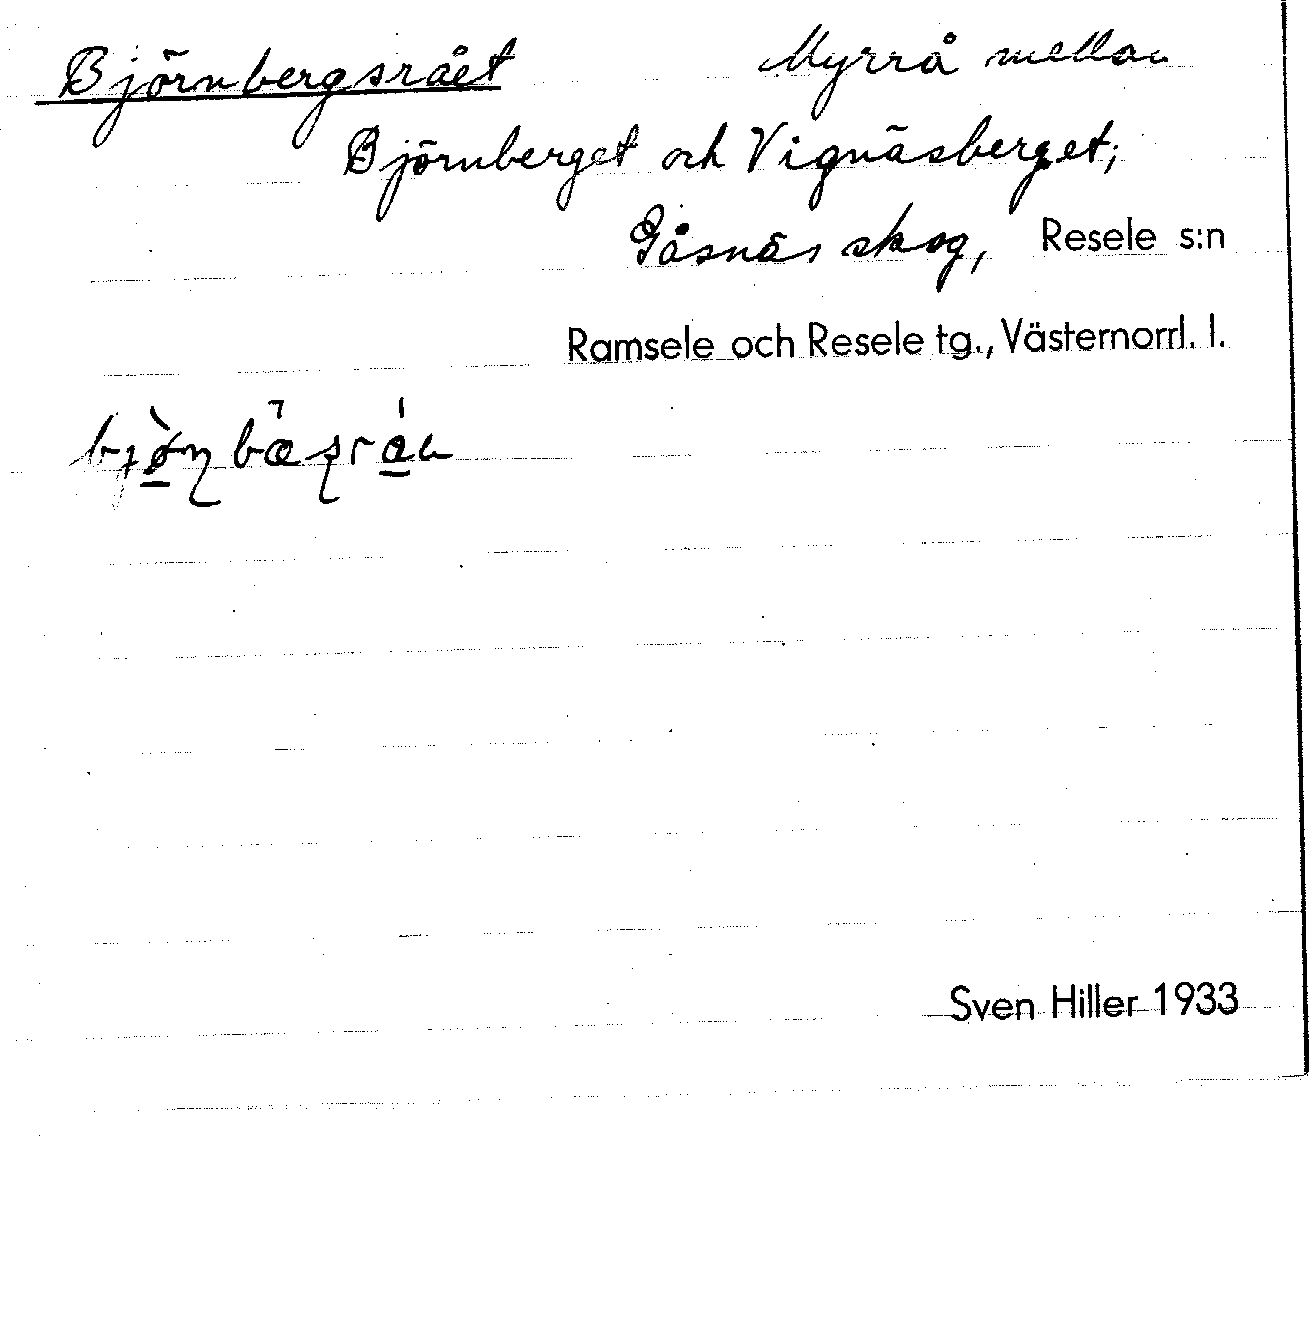 Björnbergsrået Myrrå mellan
Björnberget och Vignäsberget;
Gåsnäs skog, Resele s:n
Ramsele och Resele tg., Västernorrl. l.
Sven Hiller 1933